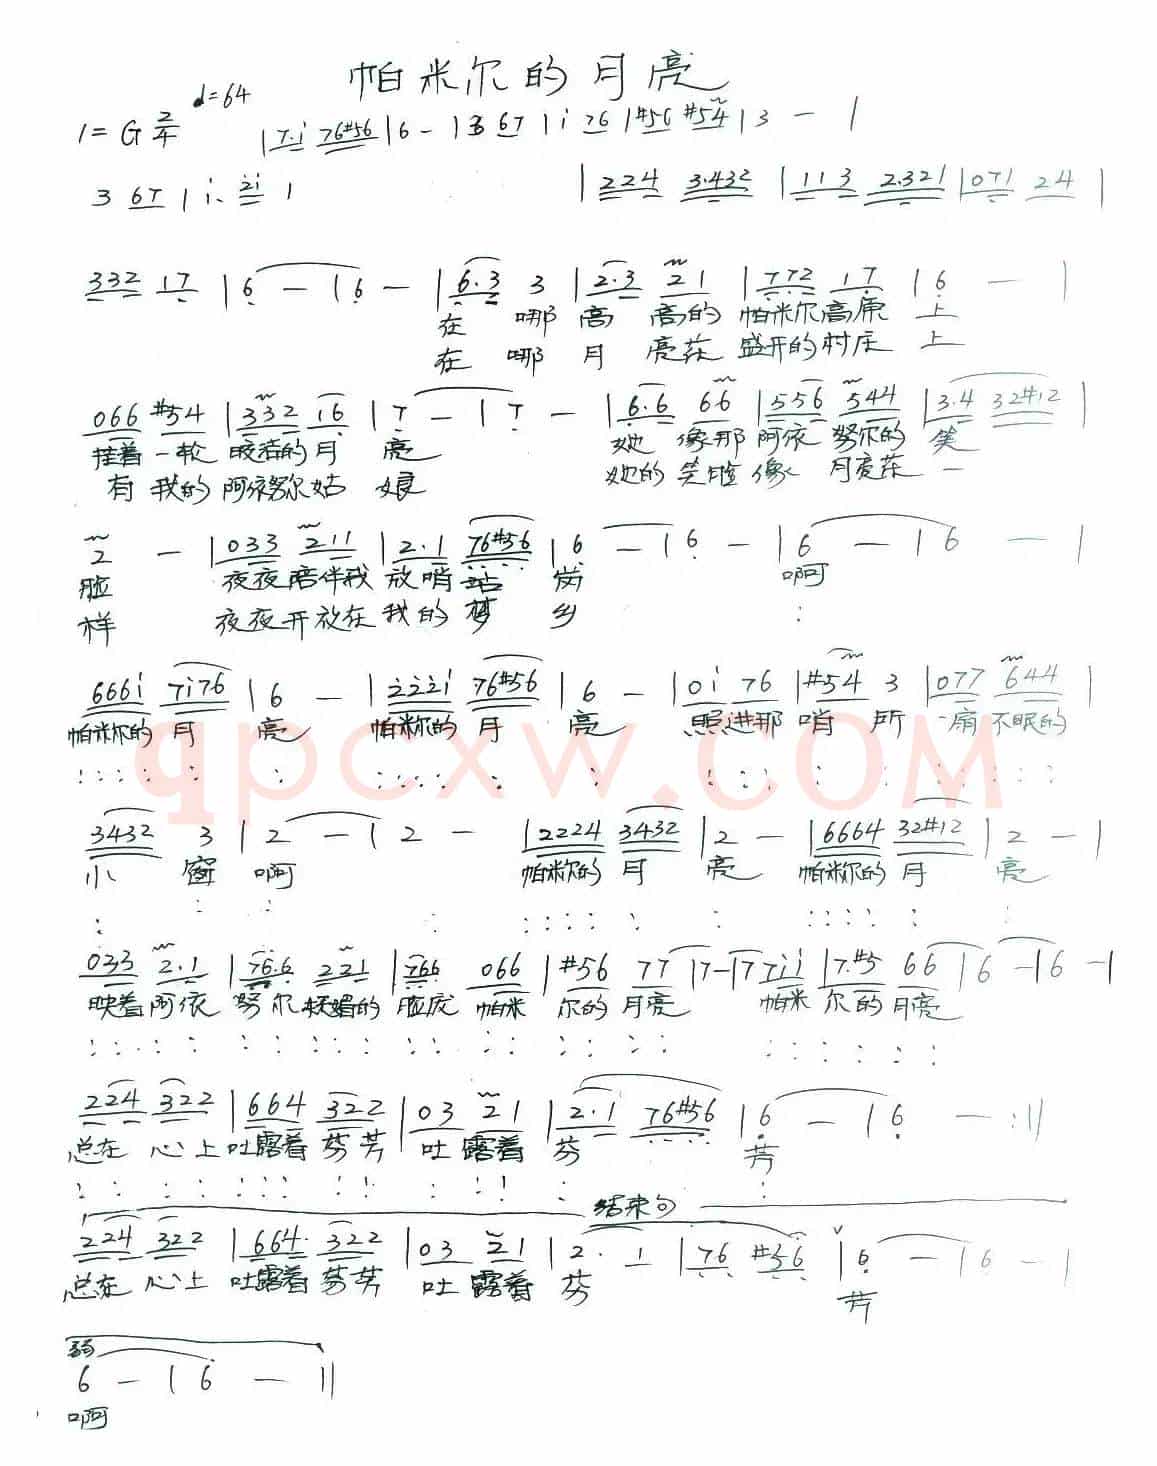 帕米尔的月亮
1=G 2/4 ♩=64 | 7·i 76#56 | 6 - | 3 67 | i 76 | #56 #54 | 3 - |
3 67 | i· 2i | | 224 3·432 | 113 2·321 | 071 24 |
332 17 | 6 - | 6 - | 6·3 3 | 2·3 21 | 772 17 | 6 - |
在 哪 高 高的 帕米尔高原 上
在 哪 月 亮花 盛开的村庄 上
066 #54 | 332 16 | 7 - | 7 - | 6·6 66 | 556 544 | 3·4 32#12 |
挂着 一轮 皎洁的 月 亮 她 像那 阿依 努尔的 笑
有 我的 阿依努尔姑 娘 她的 笑脸 像 月亮花 一
2 - | 033 211 | 2·1 76#56 | 6 - | 6 - | 6 - | 6 - |
脸 夜夜陪伴我 放哨 站 岗 啊
样 夜夜开放在 我的 梦 乡 :
666i 7i76 | 6 - | 222i 76#56 | 6 - | 0i 76 | #54 3 | 077 644 |
帕米尔的 月 亮 帕米尔的 月 亮 照进那 哨 所 一扇 不眠的
qpcxw.COM
3432 3 | 2 - | 2 - | 2224 3432 | 2 - | 6664 32#12 | 2 - |
小 窗 啊 帕米尔的 月 亮 帕米尔的 月 亮
033 2·1 | 76·6 221 | 766 066 | #56 77 | 7 - | 77ii | 7·#5 66 | 6 - | 6 - |
映着 阿依 努尔 妩媚的 脸庞 帕米 尔的 月亮 帕米 尔的 月亮
224 322 | 664 322 | 03 21 | 2·1 76#56 | 6 - | 6 - :||
总在 心上 吐露着 芬芳 吐 露着 芬 芳
结束句
224 322 | 664· 322 | 03 21 | 2· 1 | 76 #56 | 6 - | 6 - |
总在 心上 吐露着 芬芳 吐 露着 芬 芳
弱
6 - | 6 - ||
啊